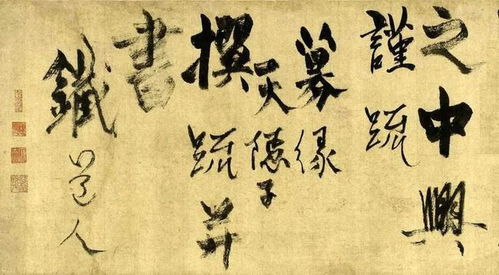 之中興
謹疏
募緣
天隱子
撰疏并
書
鐵道人